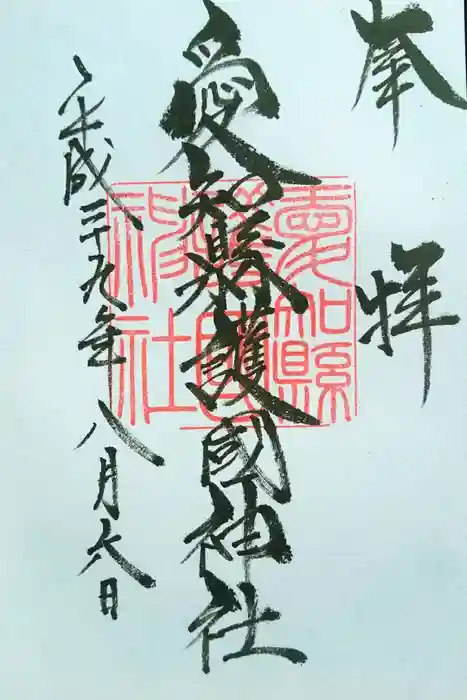 奉拝
愛知縣護國神社
平成二十九年八月六日
愛知縣
護國
神社